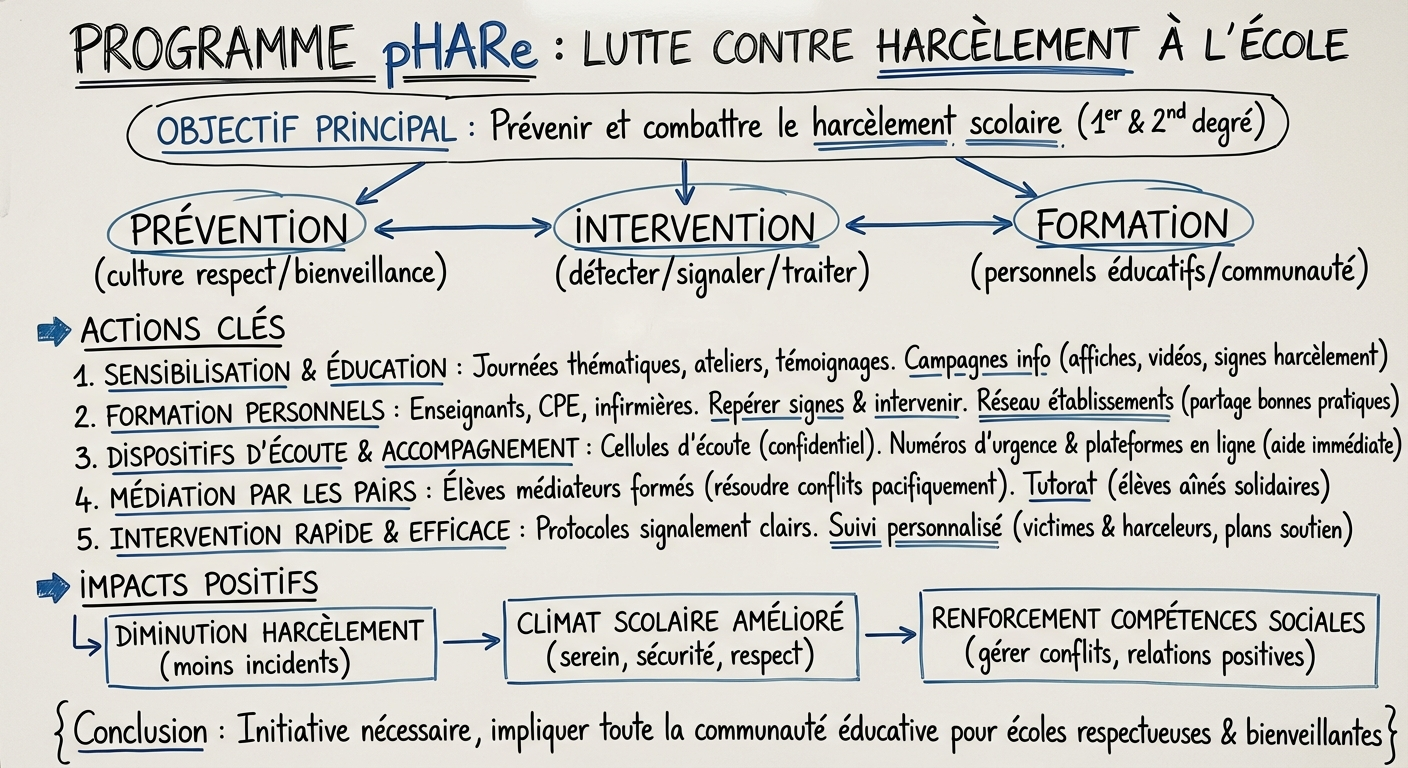 PROGRAMME pHARe : LUTTE CONTRE HARCÈLEMENT À L'ÉCOLE
OBJECTIF PRINCIPAL : Prévenir et combattre le harcèlement scolaire (1er & 2nd degré)
PRÉVENTION INTERVENTION FORMATION
(culture respect/bienveillance) (détecter/signaler/traiter) (personnels éducatifs/communauté)
ACTIONS CLÉS
1. SENSIBILISATION & ÉDUCATION : Journées thématiques, ateliers, témoignages. Campagnes info (affiches, vidéos, signes harcèlement)
2. FORMATION PERSONNELS : Enseignants, CPE, infirmières. Repérer signes & intervenir. Réseau établissements (partage bonnes pratiques)
3. DISPOSITIFS D'ÉCOUTE & ACCOMPAGNEMENT : Cellules d'écoute (confidentiel). Numéros d'urgence & plateformes en ligne (aide immédiate)
4. MÉDIATION PAR LES PAIRS : Élèves médiateurs formés (résoudre conflits pacifiquement). Tutorat (élèves aînés solidaires)
5. INTERVENTION RAPIDE & EFFICACE : Protocoles signalement clairs. Suivi personnalisé (victimes & harceleurs, plans soutien)
IMPACTS POSITIFS
DIMINUTION HARCÈLEMENT
(moins incidents)
CLIMAT SCOLAIRE AMÉLIORÉ
(serein, sécurité, respect)
RENFORCEMENT COMPÉTENCES SOCIALES
(gérer conflits, relations positives)
{Conclusion : Initiative nécessaire, impliquer toute la communauté éducative pour écoles respectueuses & bienveillantes}